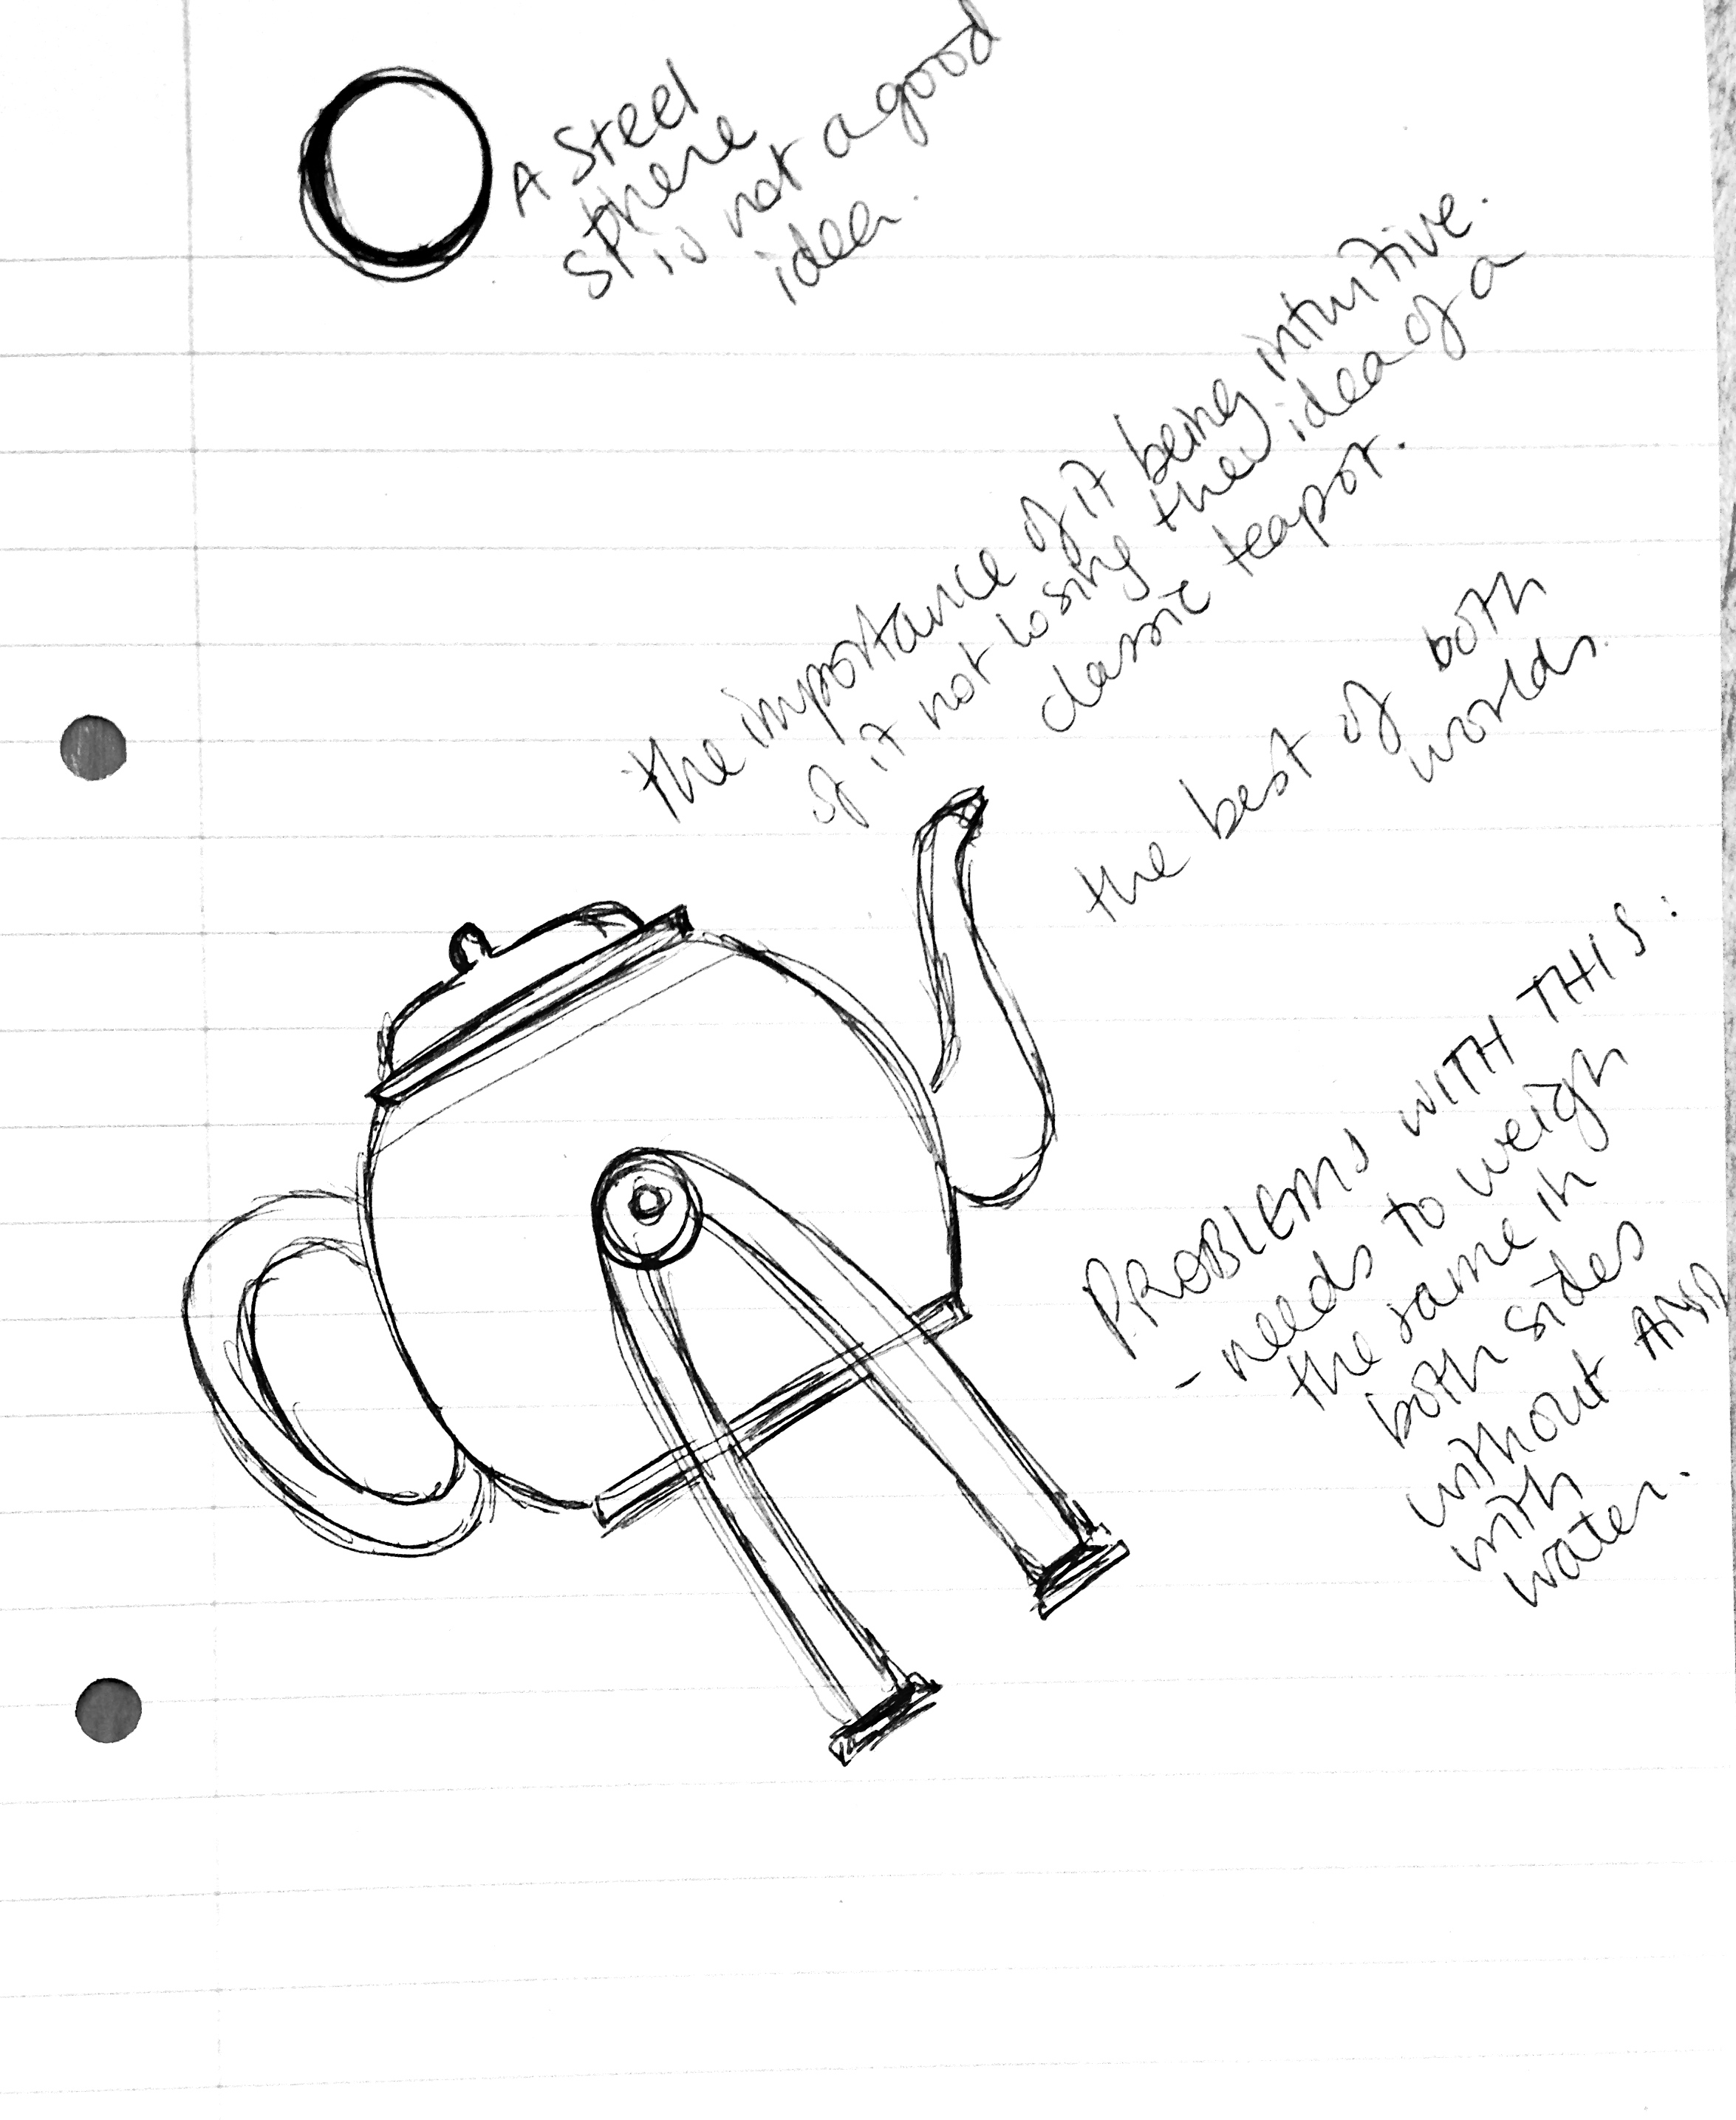 A Steel
sphere
is not a good
idea.
the importance of it being intuitive.
of it not losing the idea of a
classic teapot.
the best of both
worlds.
PROBLEMS WITH THIS:
- needs to weigh
the same in
both sides
without AND
with
water.